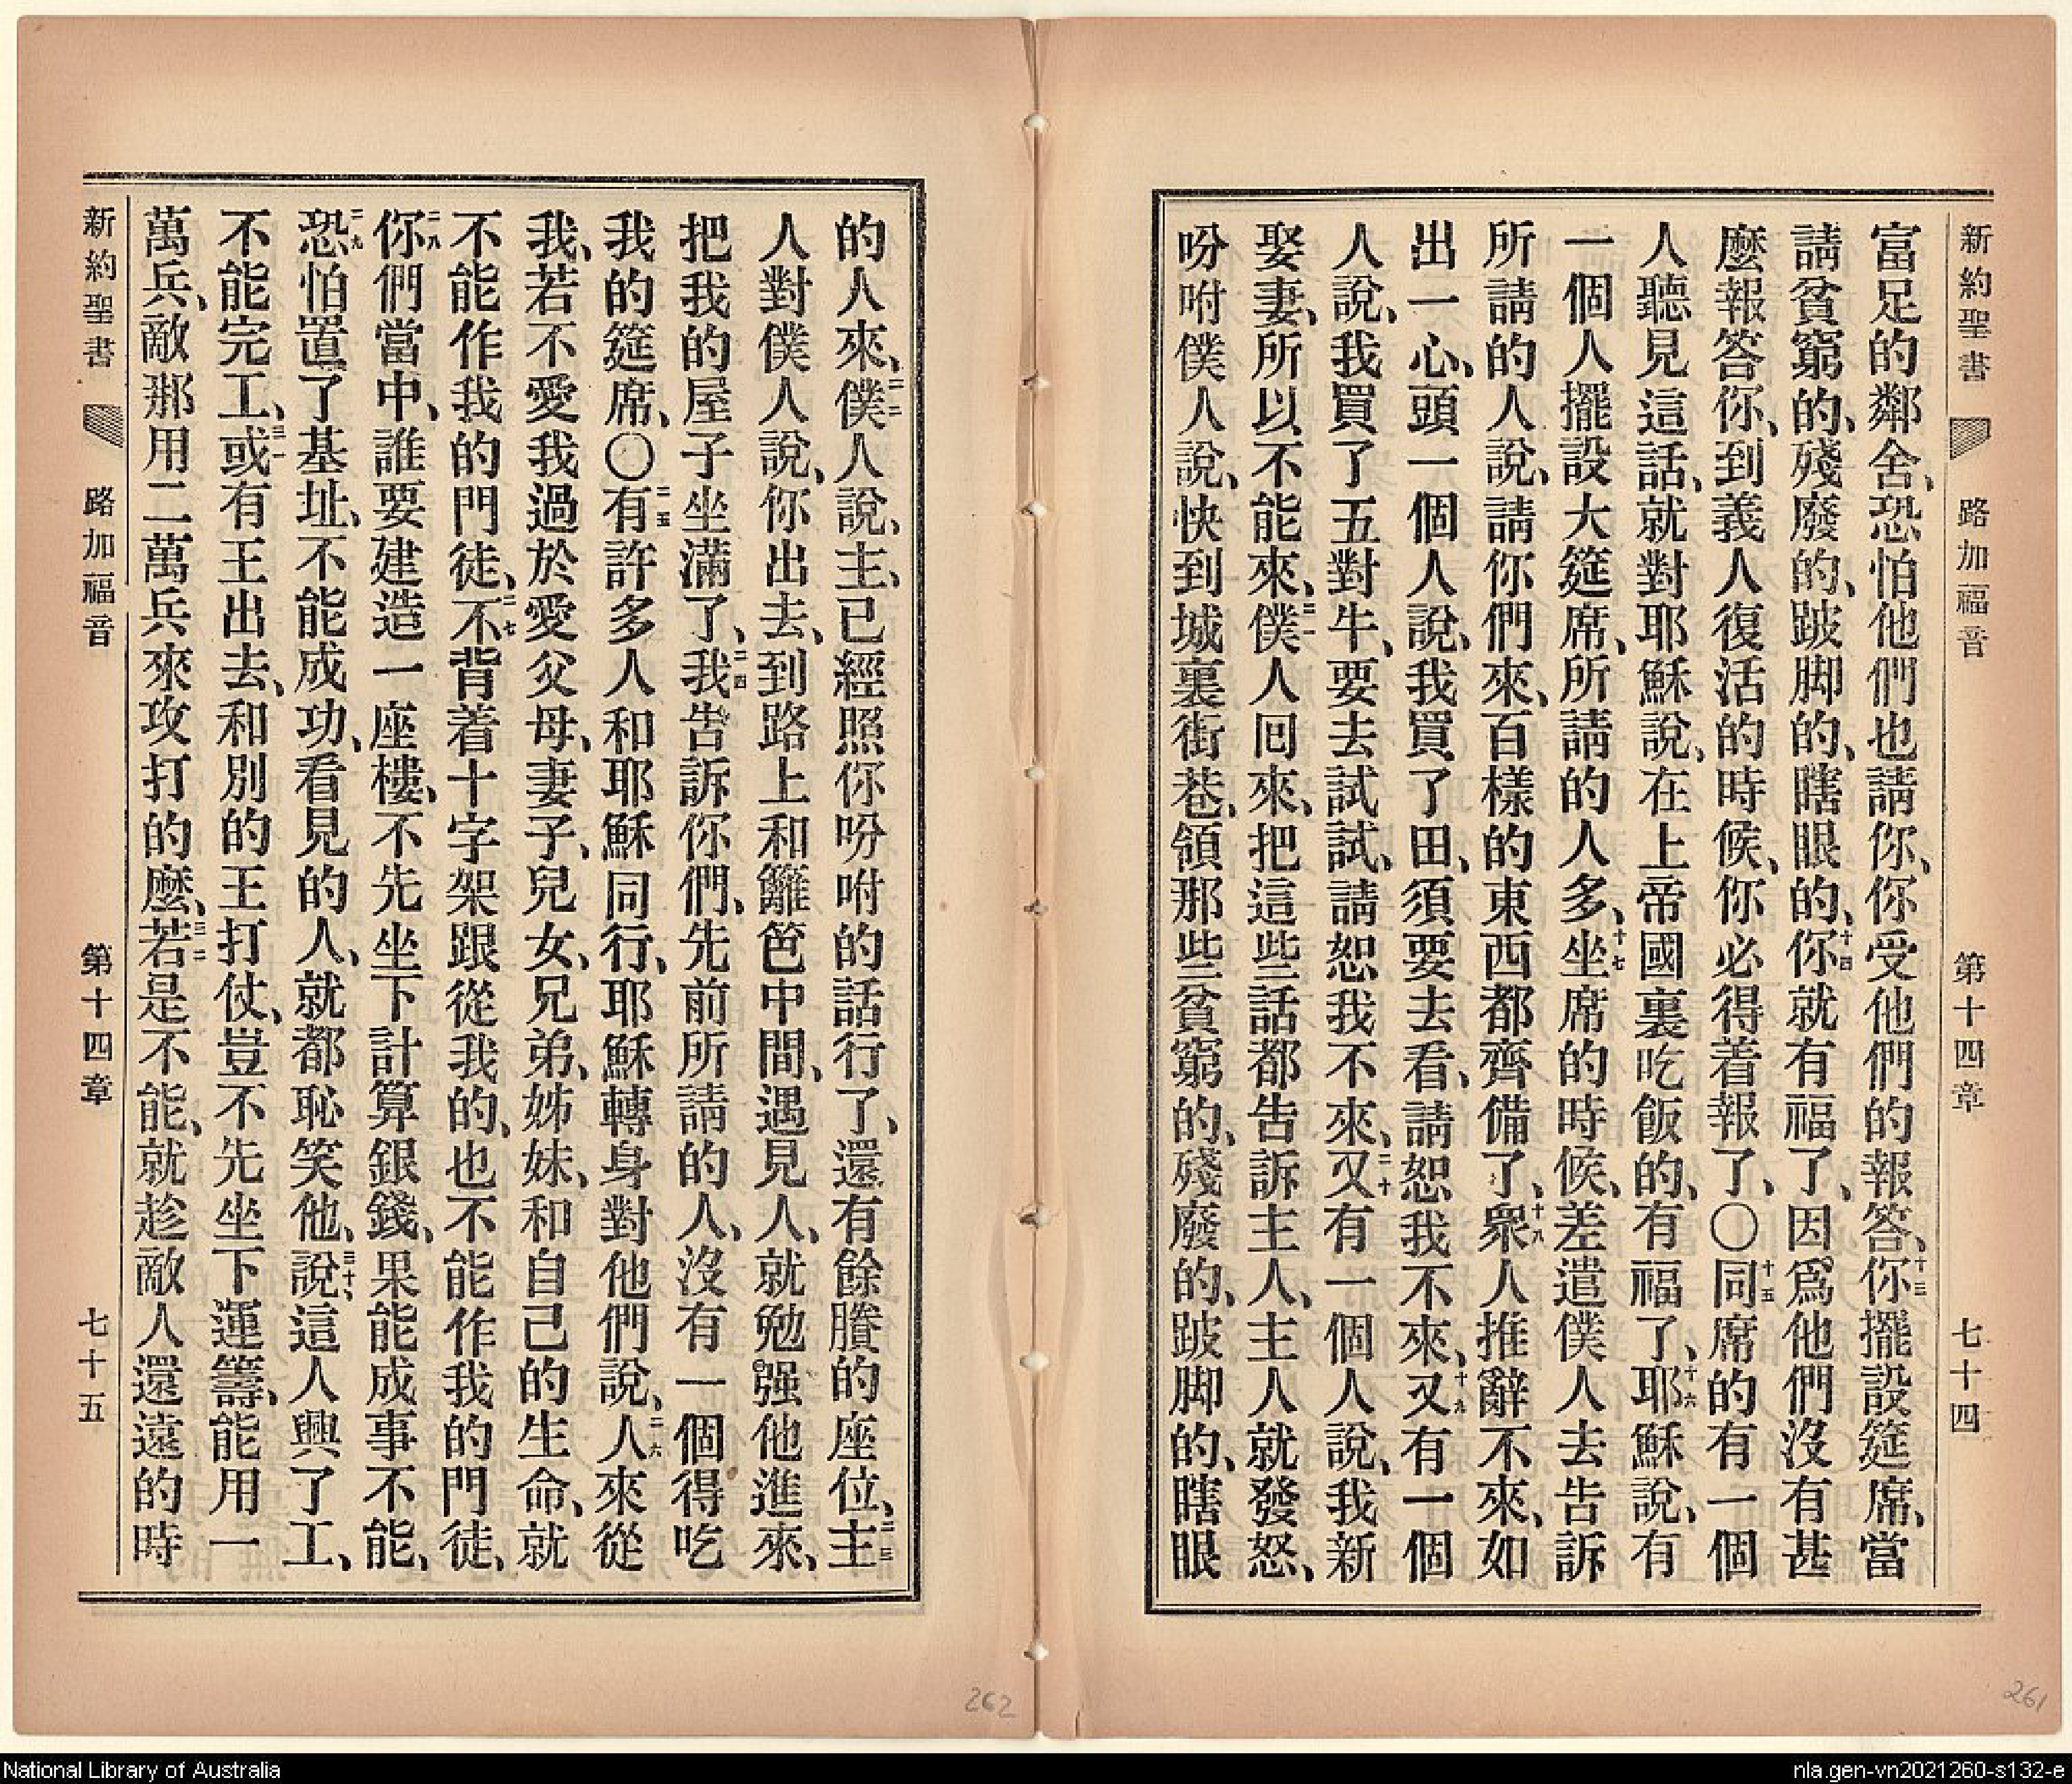 新約聖書 路加福音 第十四章 七十四
富足的鄰舍、恐怕他們也請你、你受他們的報答、十三你擺設筵席、當
請貧窮的、殘廢的、跛脚的、瞎眼的、十四你就有福了、因爲他們沒有甚
麼報答你、到義人復活的時候、你必得着報了、〇十五同席的有一個
人聽見這話、就對耶穌說、在上帝國裏吃飯的、有福了、十六耶穌說、有
一個人擺設大筵席、所請的人多、十七坐席的時候、差遣僕人去告訴
所請的人說、請你們來、百樣的東西都齊備了、十八衆人推辭不來、如
出一心、頭一個人說、我買了田、須要去看、請恕我不來、十九又有一個
人說、我買了五對牛、要去試試、請恕我不來、二十又有一個人說、我新
娶妻、所以不能來、二一僕人囘來、把這些話都告訴主人、主人就發怒、
吩咐僕人說、快到城裏街巷、領那些貧窮的、殘廢的、跛脚的、瞎眼
的人來、二二僕人說、主、已經照你吩咐的話行了、還有餘賸的座位、二三主
人對僕人說、你出去、到路上和籬笆中間、遇見人、就勉强他進來、
把我的屋子坐滿了、二四我告訴你們、先前所請的人、沒有一個得吃
我的筵席、〇二五有許多人和耶穌同行、耶穌轉身對他們說、二六人來從
我、若不愛我過於愛父母、妻子、兒女、兄弟、姊妹、和自己的生命、就
不能作我的門徒、二七不背着十字架跟從我的、也不能作我的門徒、
二八你們當中、誰要建造一座樓、不先坐下計算銀錢、果能成事不能、
二九恐怕置了基址、不能成功、看見的人、就都恥笑他、三十說、這人興了工、
不能完工、三一或有王出去、和別的王打仗、豈不先坐下運籌、能用一
萬兵、敵那用二萬兵來攻打的麼、三二若是不能、就趁敵人還遠的時
新約聖書 路加福音 第十四章 七十五
262
261
National Library of Australia
nla.gen-vn2021260-s132-e